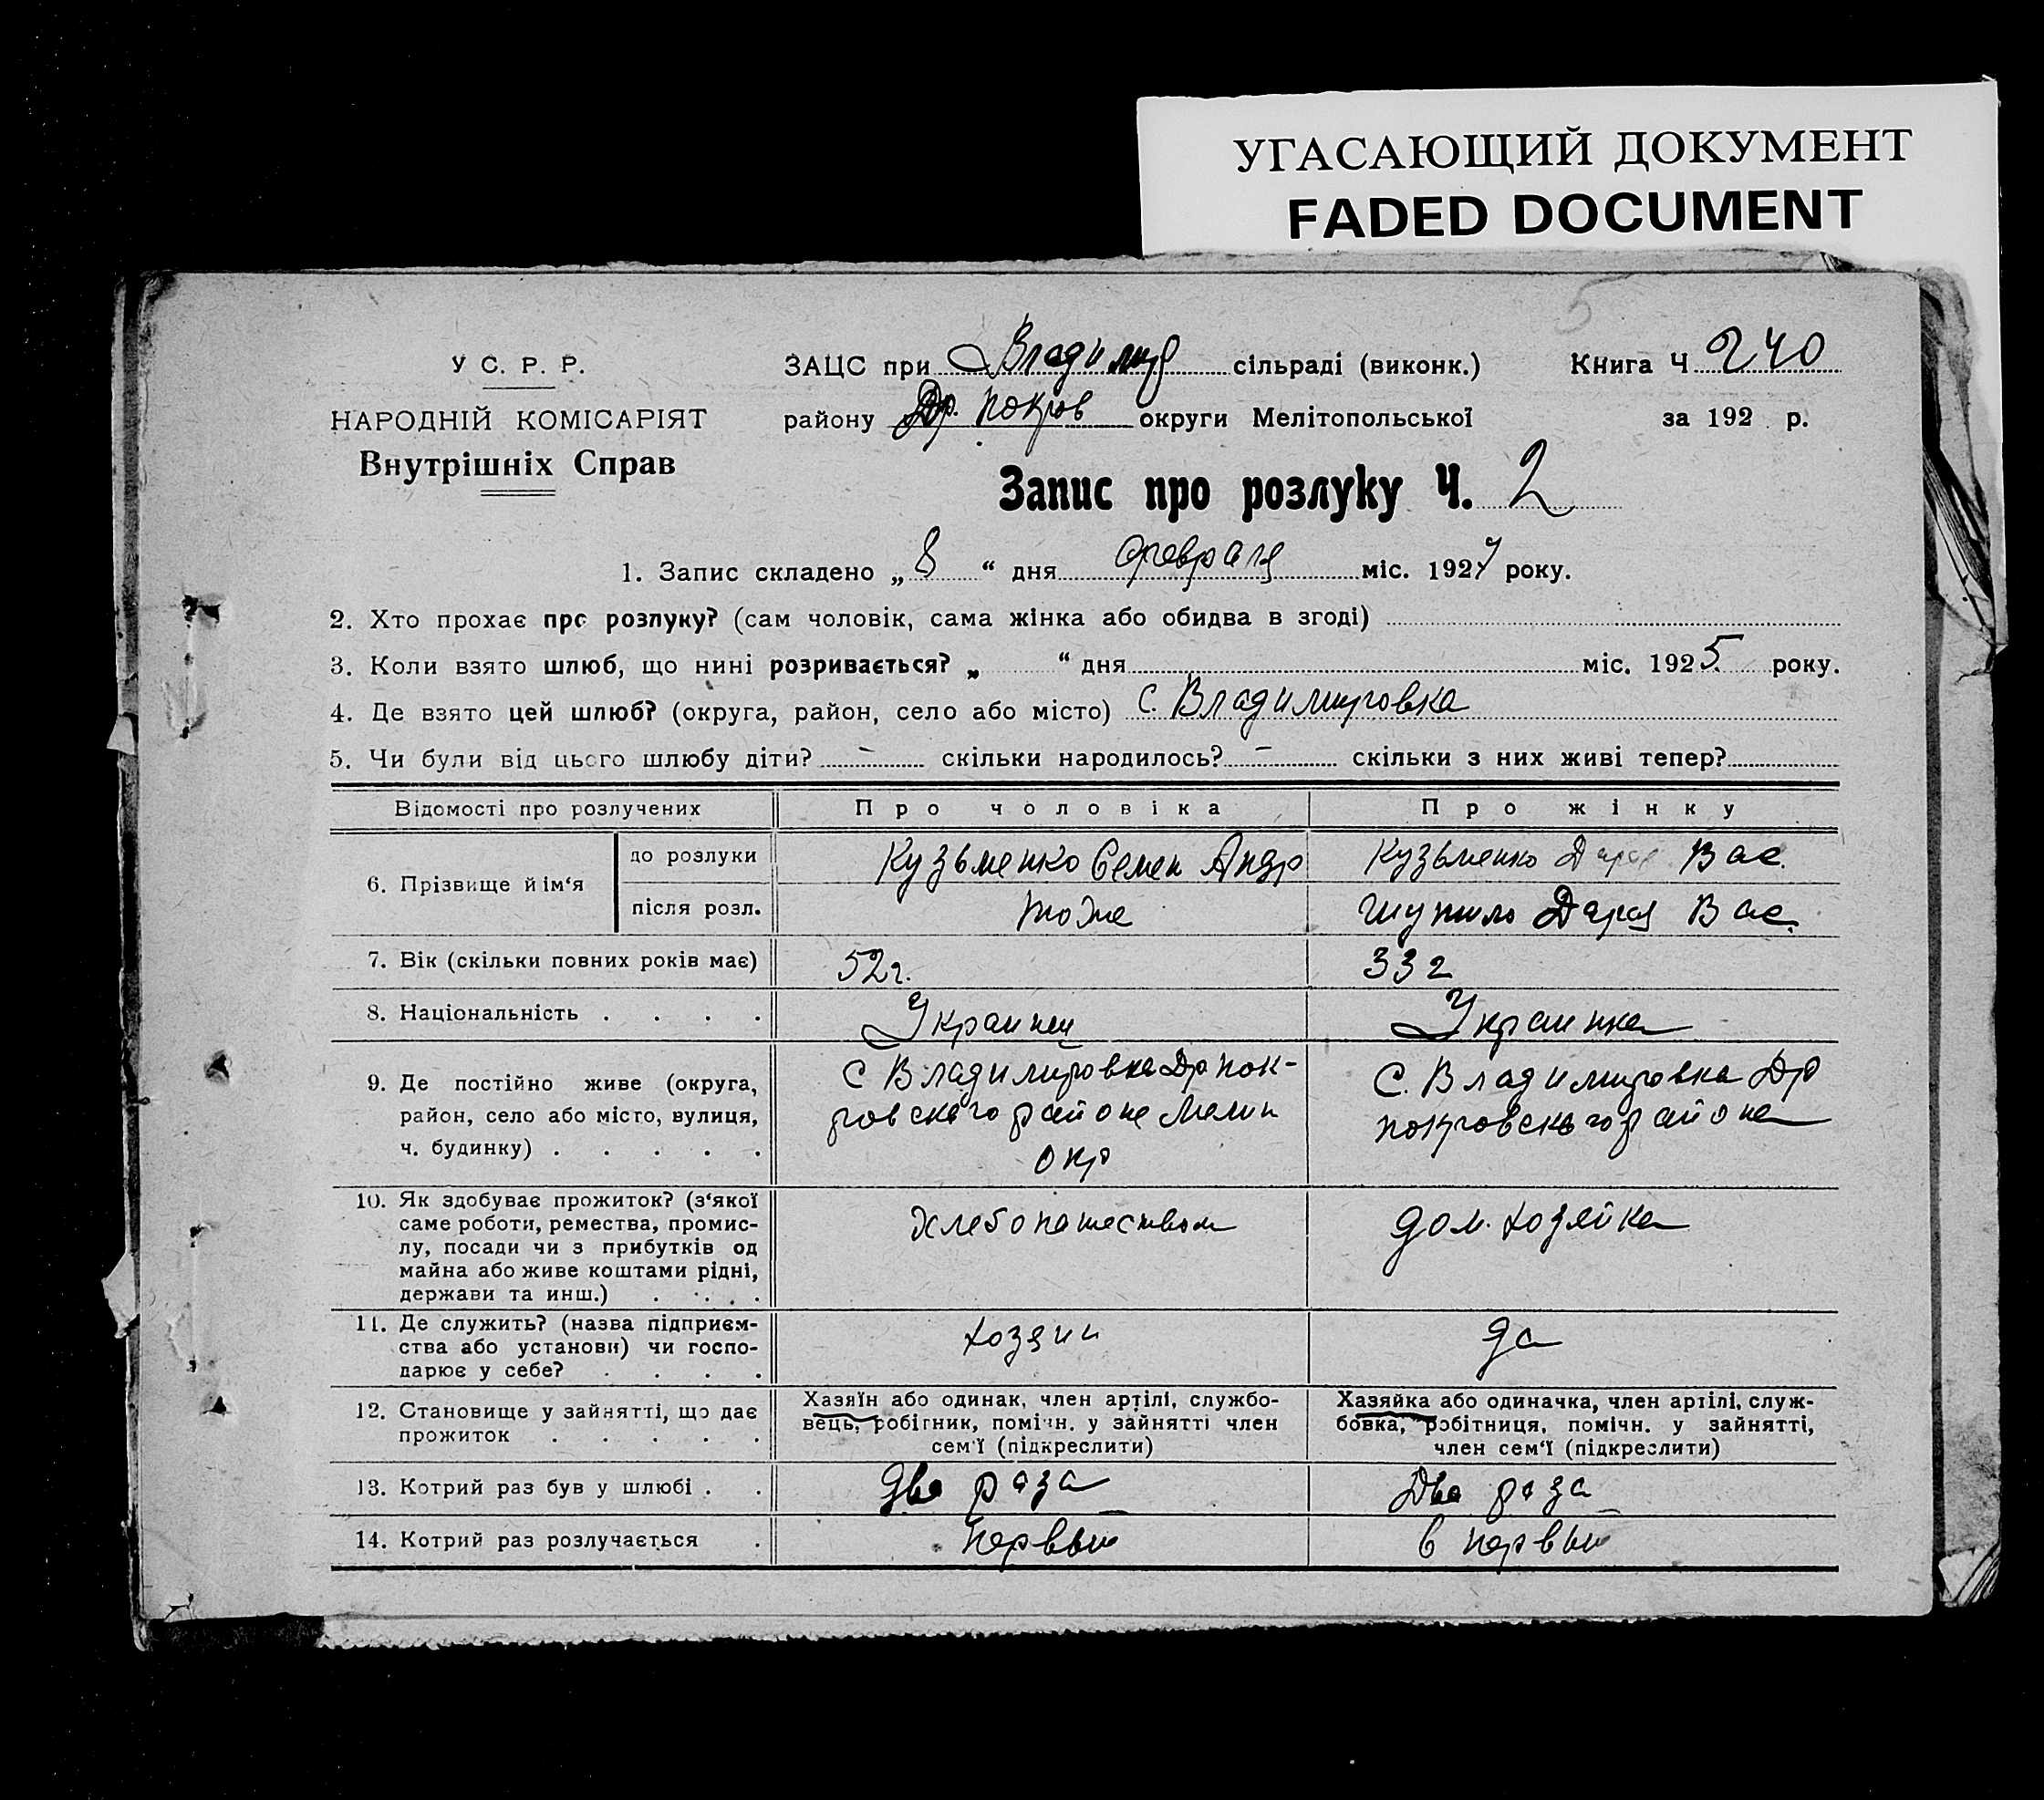 УГАСАЮЩИЙ ДОКУМЕНТ
FADED DOCUMENT
5
У С. Р. Р.
НАРОДНІЙ КОМІСАРІЯТ
Внутрішніх Справ
ЗАЦС при Владимир сільраді (виконк.)
району Др. Покров округи Мелітопольської
Книга Ч 240
за 192 р.
Запис про розлуку Ч. 2
1. Запис складено „ 8 “ дня февраля міс. 1927 року.
2. Хто прохає про розлуку? (сам чоловік, сама жінка або обидва в згоді)
3. Коли взято шлюб, що нині розривається? „ “ дня міс. 1925 року.
4. Де взято цей шлюб? (округа, район, село або місто) С. Владимировка
5. Чи були від цього шлюбу діти? – скільки народилось? – скільки з них живі тепер?
Відомості про розлучених Про чоловіка Про жінку
6. Прізвище й ім‘я
до розлуки Кузьменко Семен Андр Кузьменко Дарья Вас.
після розл. тоже Дарья Вас.
7. Вік (скільки повних років має) 52г. 33г
8. Національність . . . . Украинец Украинка
9. Де постійно живе (округа,
район, село або місто, вулиця,
ч. будинку) . . . . .
С Владимировка Др Пок-
ровского района Мелит
окр
С. Владимировка Др
Покровского района
10. Як здобуває прожиток? (з‘якої
саме роботи, ремества, промис-
лу, посади чи з прибутків од
майна або живе коштами рідні,
держави та инш.) . . . .
Хлебопашеством
дом. хозяйка
11. Де служить? (назва підприєм-
ства або установи) чи госпо-
дарює у себе? . . . .
хозяин
да
12. Становище у зайнятті, що дає
прожиток . . . . .
Хазяїн або одинак, член артілі, службо-
вець, робітник, помічн. у зайнятті член
сем‘ї (підкреслити)
Хазяйка або одиначка, член артілі, служ-
бовка, робітниця, помічн. у зайнятті,
член сем‘ї (підкреслити)
13. Котрий раз був у шлюбі . . два раза Два раза
14. Котрий раз розлучається . первый в первый